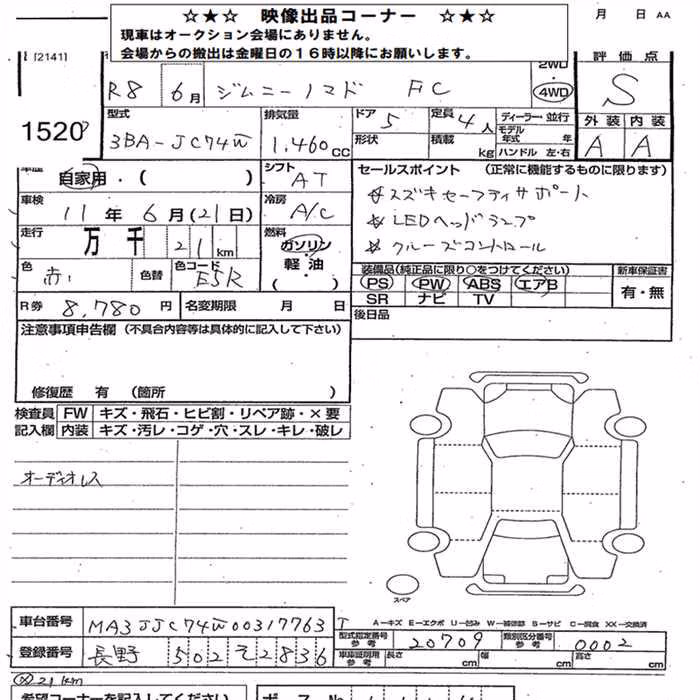 ☆★☆ 映像出品コーナー ☆★☆
現車はオークション会場にありません。
会場からの搬出は金曜日の16時以降にお願いします。
月 日 AA
[2141]
2WD
4WD
R8 6月 ジムニーノマド FC
評価点
S
1520
型式
3BA-JC74W
排気量
1,460CC
ドア
5
形状
定員
4人
積載
kg
ディーラー・並行
モデル年式 年
ハンドル 左・右
外装 内装
A A
車歴
自家用・( )
シフト
AT
セールスポイント (正常に機能するものに限ります)
☆スズキセーフティサポート
☆LEDヘッドランプ
☆クルーズコントロール
車検
11年6月(21日)
冷房
A/C
走行
万 千 21km
燃料
ガソリン・軽油
( )
色
赤
色替
色コード
ESR
装備品(純正品に限り○をつけてください)
PS PW ABS エアB
SR ナビ TV
新車保証書
有・無
R券 8,780円
名変期限 月 日
後日品
注意事項申告欄 (不具合内容等は具体的に記入して下さい)
修復歴 有 (箇所 )
検査員記入欄
FW キズ・飛石・ヒビ割・リペア跡・×要
内装 キズ・汚レ・コゲ・穴・スレ・キレ・破レ
オーディオレス
スペア
A−キズ E−エクボ U−凹み W−補修跡 S−サビ C−腐食 XX−交換済
車台番号 MA3JJC74W00317763
登録番号 長野 502 そ 2836
型式指定番号 参考 20709
類別区分番号 参考 0002
車庫証明用 参考 長さ cm 幅 cm 高さ cm
21km
希望コーナーを記入ください
ボースNo